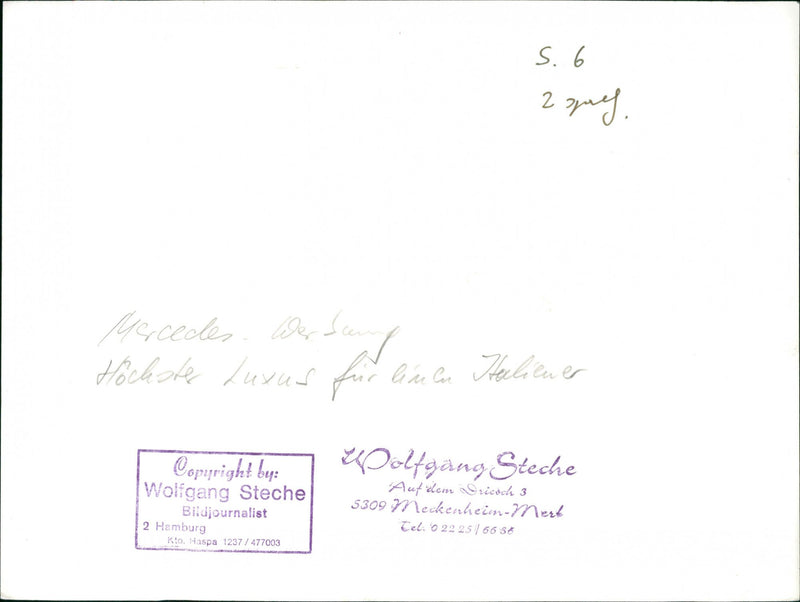 S. 6
2 spalt.
Mercedes-Werbung
Höchster Luxus für einen Italiener
Copyright by:
Wolfgang Steche
Bildjournalist
2 Hamburg
Kto. Haspa 1237/477003
Wolfgang Steche
Auf dem Driesch 3
5309 Meckenheim-Merl
Tel. 02225/6656